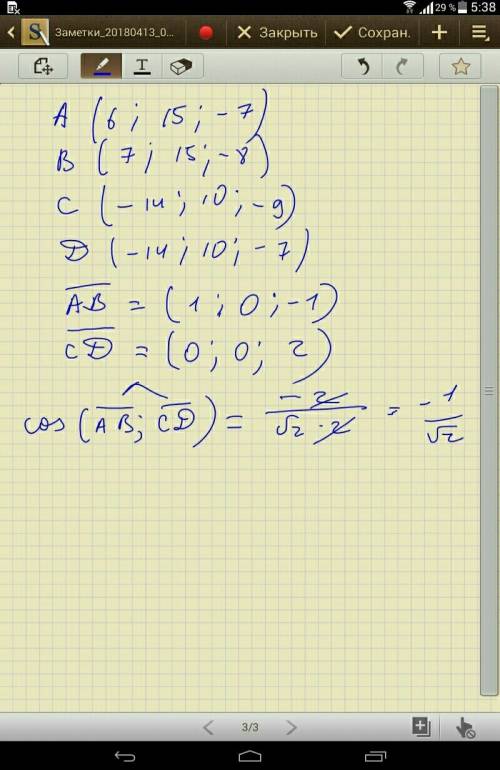 29 % 5:38
Заметки_20180413_0... Закрыть Сохран.
T
A (6; 15; -7)
B (7; 15; -8)
C (-14; 10; -9)
D (-14; 10; -7)
AB = (1; 0; -1)
CD = (0; 0; 2)
cos(AB; CD) = -2/(√2·2) = -1/√2
3/3